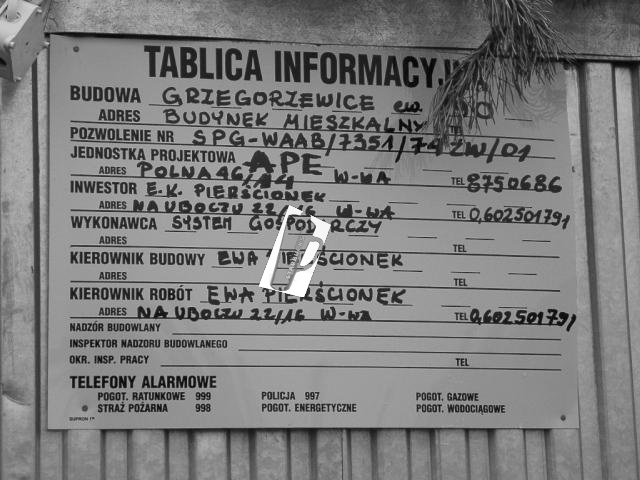 TABLICA INFORMACYJNA
BUDOWA GRZEGORZEWICE ew.
ADRES BUDYNEK MIESZKALNY
POZWOLENIE NR SPG-WAAB/7351/74 ZW/01
JEDNOSTKA PROJEKTOWA APE
ADRES POLNA 46/44 W-WA TEL 8750686
INWESTOR E.K. PIERŚCIONEK
ADRES NA UBOCZU 22/16 W-WA TEL 0,602501791
WYKONAWCA SYSTEM GOSPODARCZY
ADRES TEL
KIEROWNIK BUDOWY EWA PIERŚCIONEK
ADRES TEL
KIEROWNIK ROBÓT EWA PIERŚCIONEK
ADRES NA UBOCZU 22/16 W-wa TEL 0,602501791
NADZÓR BUDOWLANY
INSPEKTOR NADZORU BUDOWLANEGO
OKR. INSP. PRACY TEL
TELEFONY ALARMOWE
POGOT. RATUNKOWE 999 POLICJA 997 POGOT. GAZOWE
STRAŻ POŻARNA 998 POGOT. ENERGETYCZNE POGOT. WODOCIĄGOWE